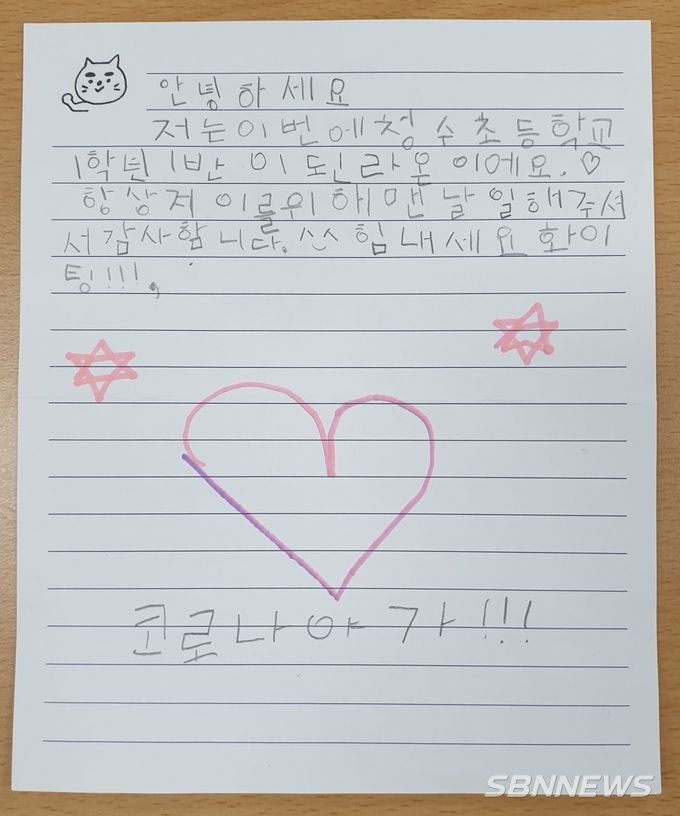 안녕하세요
저는이번에청수초등학교
1학년 1반 이든라온이에요.♡
항상저이를위해맨날일해주셔
서감사합니다.^^힘내세요화이
팅!!!,
코로나야가!!!
SBNNEWS